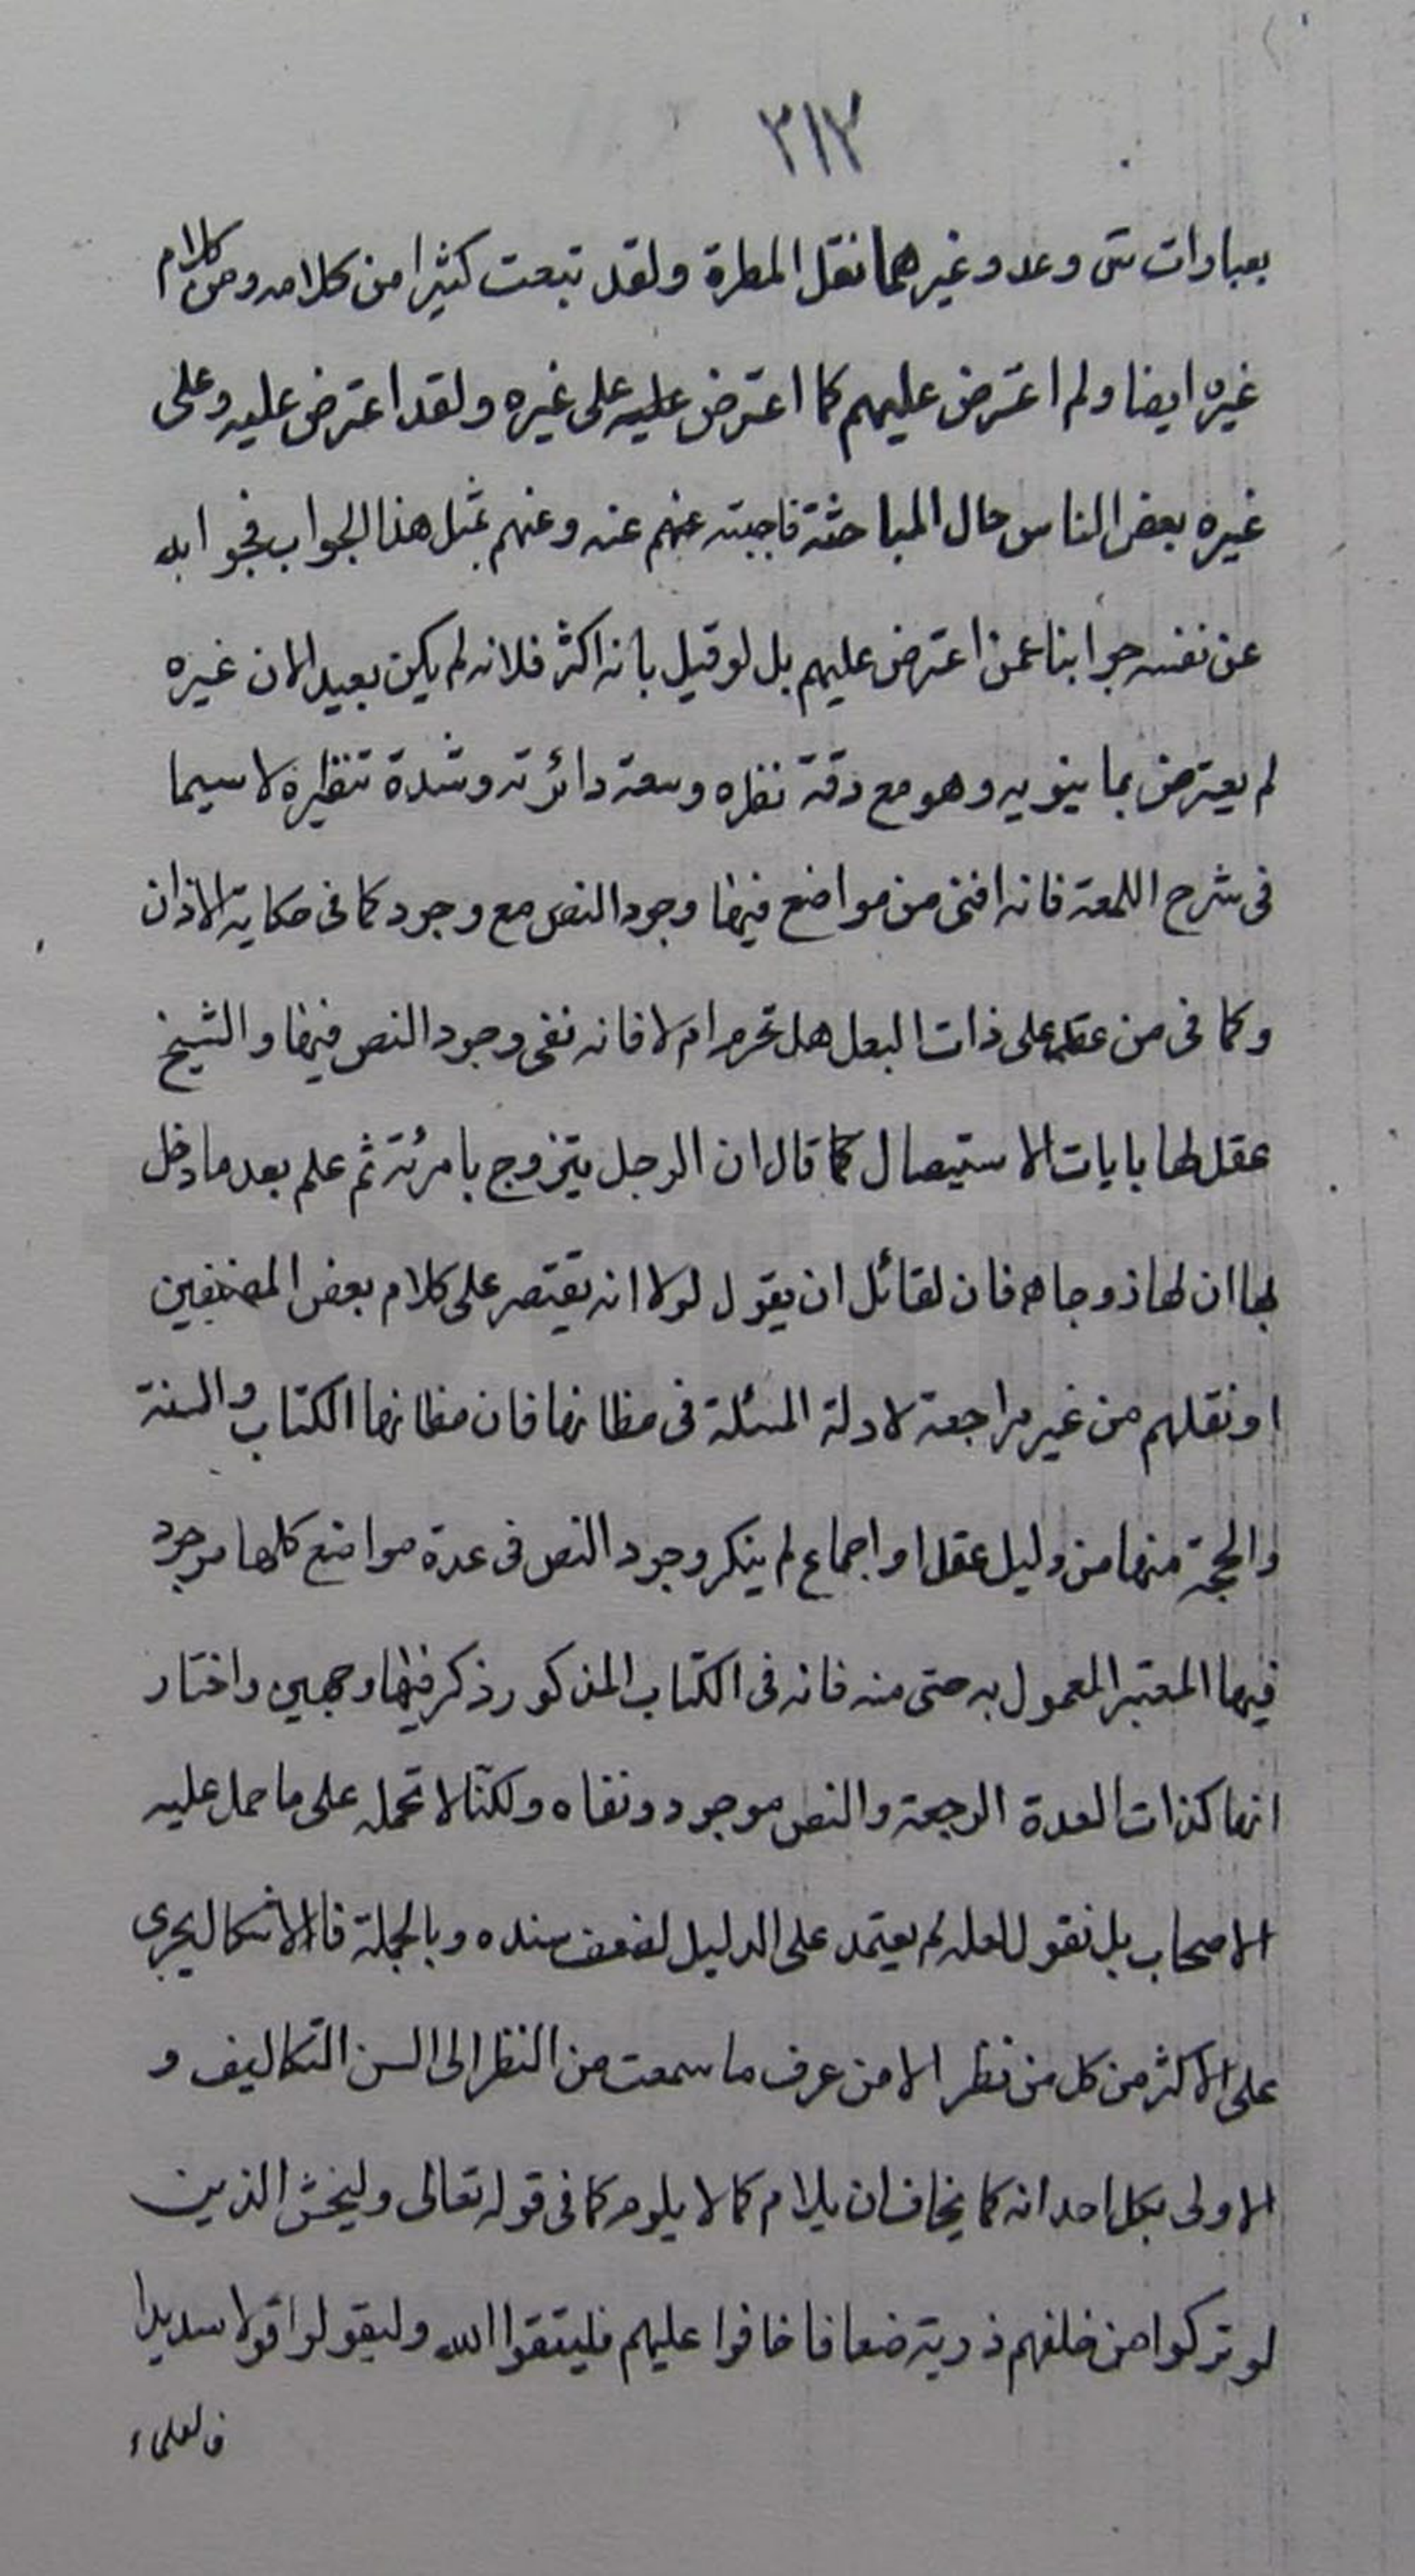 ٣١٣
بعبارات شتى وعد وغيرهما نقل المطرة ولقد تبعت كثيرا من كلامه ومن كلام
غيره ايضا ولم اعترض عليهم كما اعترض عليه على غيره ولقد اعترض عليه وعلى
غيره بعض الناس حال المباحثة فاجبته عنهم عنه وعنهم بمثل هذا الجواب فجوابه
عن نفسه جوابنا عمن اعترض عليهم بل لو قيل بانه اكثر فلانه لم يكن بعيد الان غيره
لم يعترض بما ينويه وهو مع دقة نظره وسعة دائرته وشدة تنظيره لا سيما
فى شرح اللمعة فانه من مواضع فيها وجود النص مع وجود كما فى حكاية الاذان
وكما فى من عقد على ذات البعل هل تحرم ام لا فانه نفى وجود النص فيها والشيخ
عقد لها بابات الاستبصال كما قال ان الرجل يتزوج بامرئة ثم علم بعد ما دخل
بها ان لها ذوجا هم فان لقائل ان يقول لولا انه يقتصر على كلام بعض المصنفين
او نقلهم من غير مراجعة لادلة المسئلة فى مظانها فان مظانها الكتاب والسنة
والحجة منها من دليل عقل او اجماع لم ينكر وجود النص فى عدة مواضع كلها موجود
فيها المعتبر المعمول به حتى منه فانه فى الكتاب المذكور ذكر فيها وجهين واختار
انها كذات العدة الرجعة والنص موجود ونفاه ولكنا لا نحمله على ما حمل عليه
الاصحاب بل نقول لعله لم يعتمد على الدليل لضعف سنده وبالجملة فالاشكال يجرى
على الاكثر من كل من نظر الا من عرف ما سمعت من النظر الى السن التكاليف و
الاولى بكل احد انه كما يخاف ان يلام كما لا يلوم كما فى قوله تعالى وليخش الذين
لو تركوا من خلفهم ذرية ضعافا خافوا عليهم فليتقوا الله وليقولوا قولا سديدا